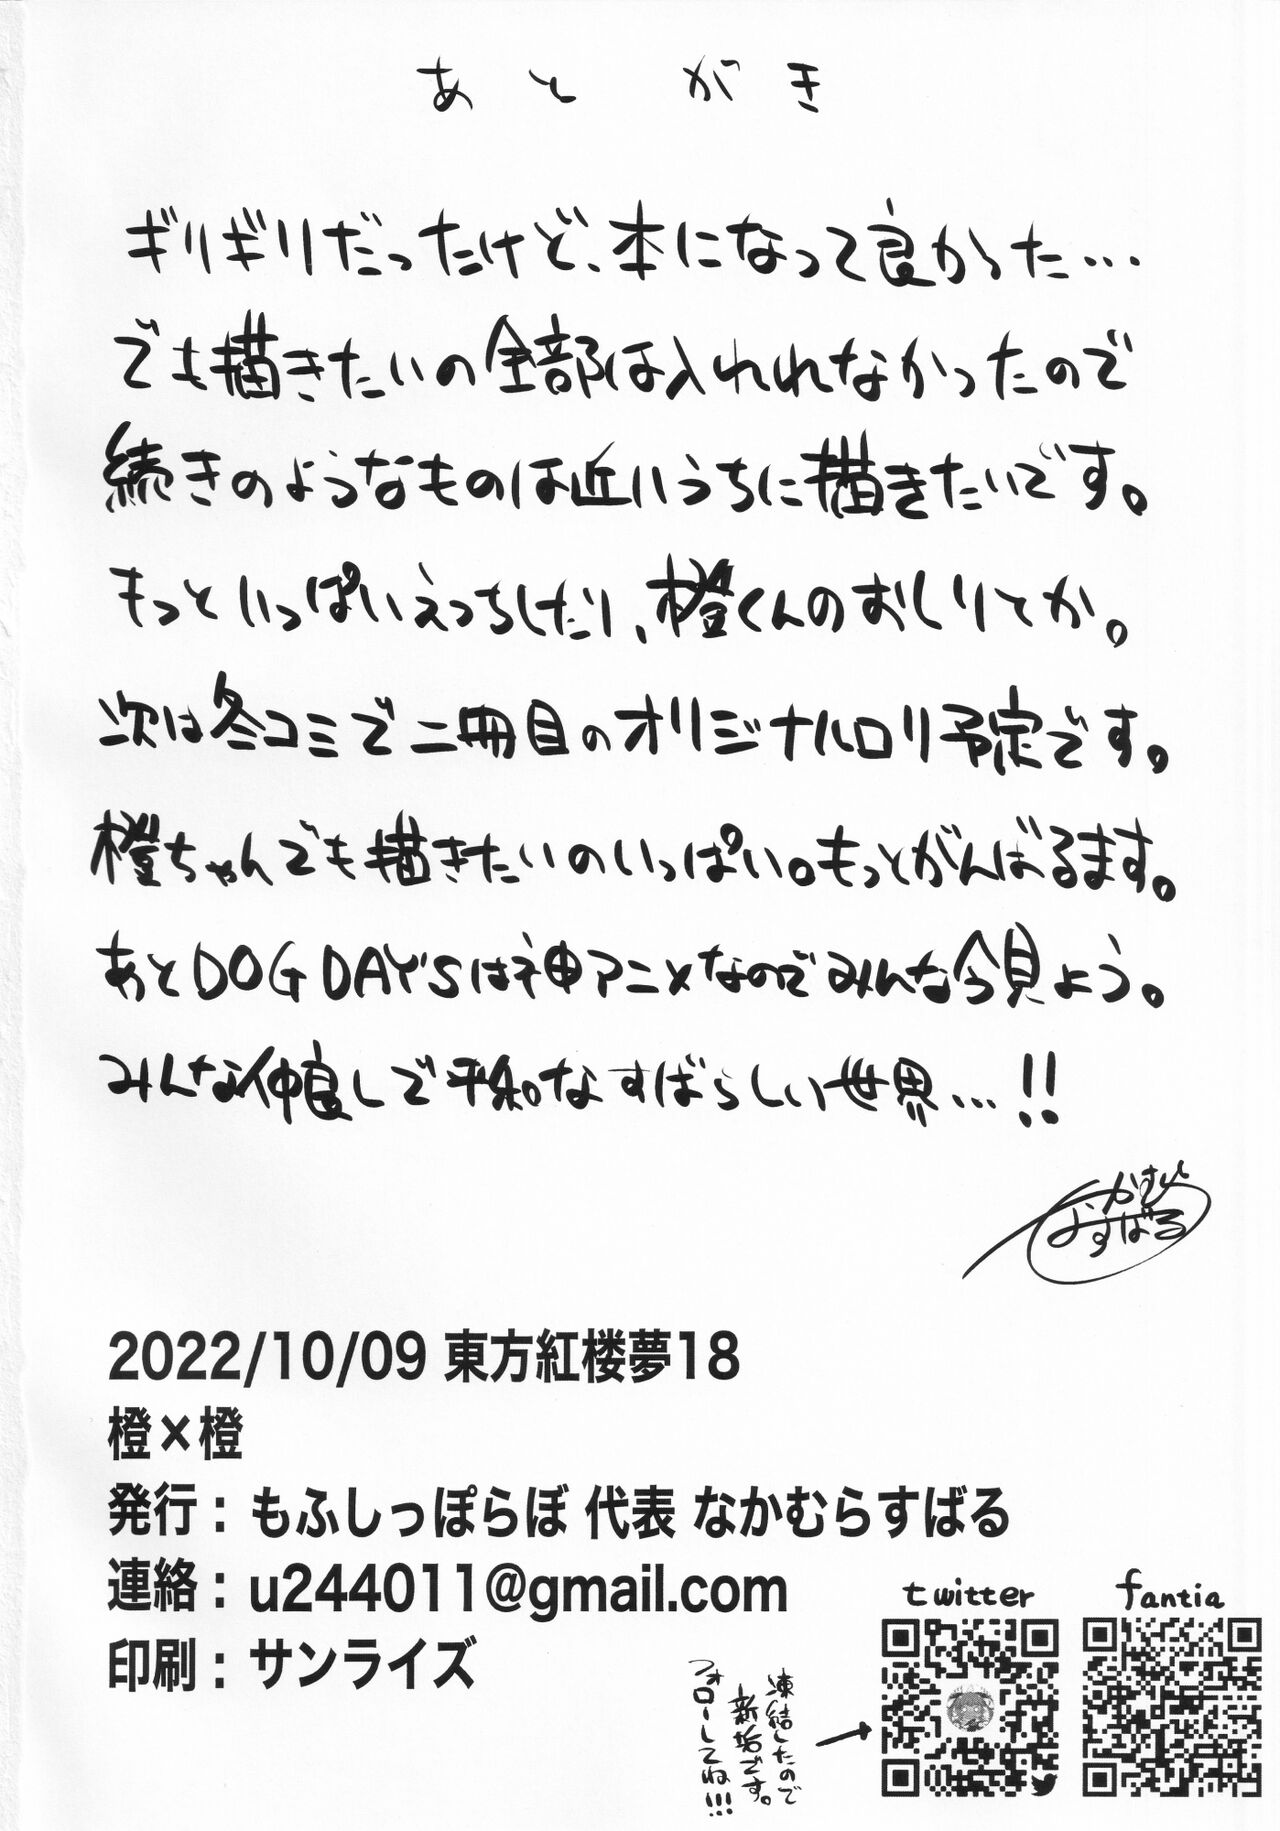 あとがき
ギリギリだったけど、本になって良かった…
でも描きたいの全部は入れれなかったので
続きのようなものは近いうちに描きたいです。
もっといっぱいえっちしたり、橙くんのおしりとか。
次は冬コミで二冊目のオリジナルロリ予定です。
橙ちゃんでも描きたいのいっぱい。もっとがんばるます。
あとDOG DAY'Sは神アニメなのでみんな今見よう。
みんな仲良しで平和なすばらしい世界…!!
2022/10/09 東方紅楼夢18
橙×橙
発行： もふしっぽらぼ 代表 なかむらすばる
連絡： u244011@gmail.com
印刷： サンライズ
twitter
fantia
凍結したので
新垢です。
フォローしてね!!!